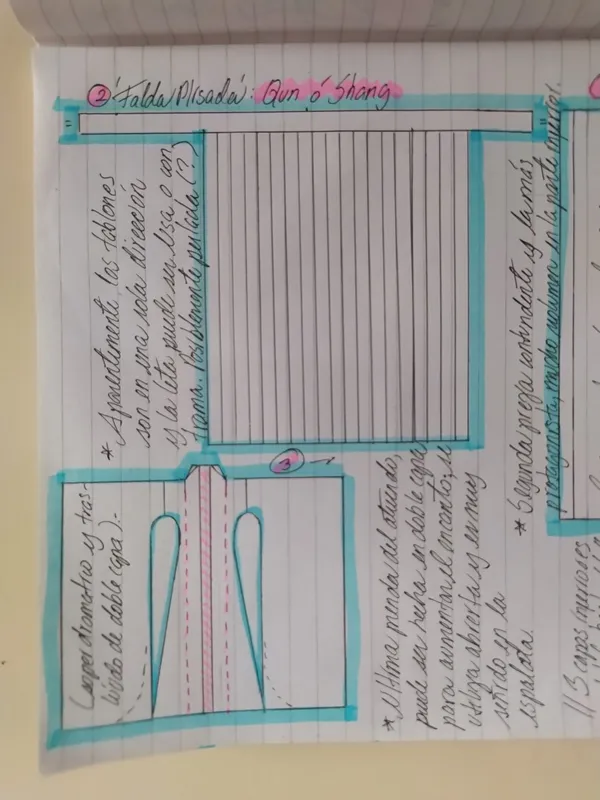 ② Falda Plisada: Qun ó Shang
* Aparentemente, las tablones
son en una sola dirección
y la tela puede ser lisa o con
trama. Posiblemente pentada (?)
3
(super dramatico y tras-
lúcido de doble capa).-
* Ultima prenda del atuendo,
puede ser hecha en doble capa
para aumentar el encanto, se
utiliza abierta y es muy
seńido en la
espalda.
* Segunda pieza contundente y la más
protagonista, mucho volumen en la parte inferior.
// 3 capas menores